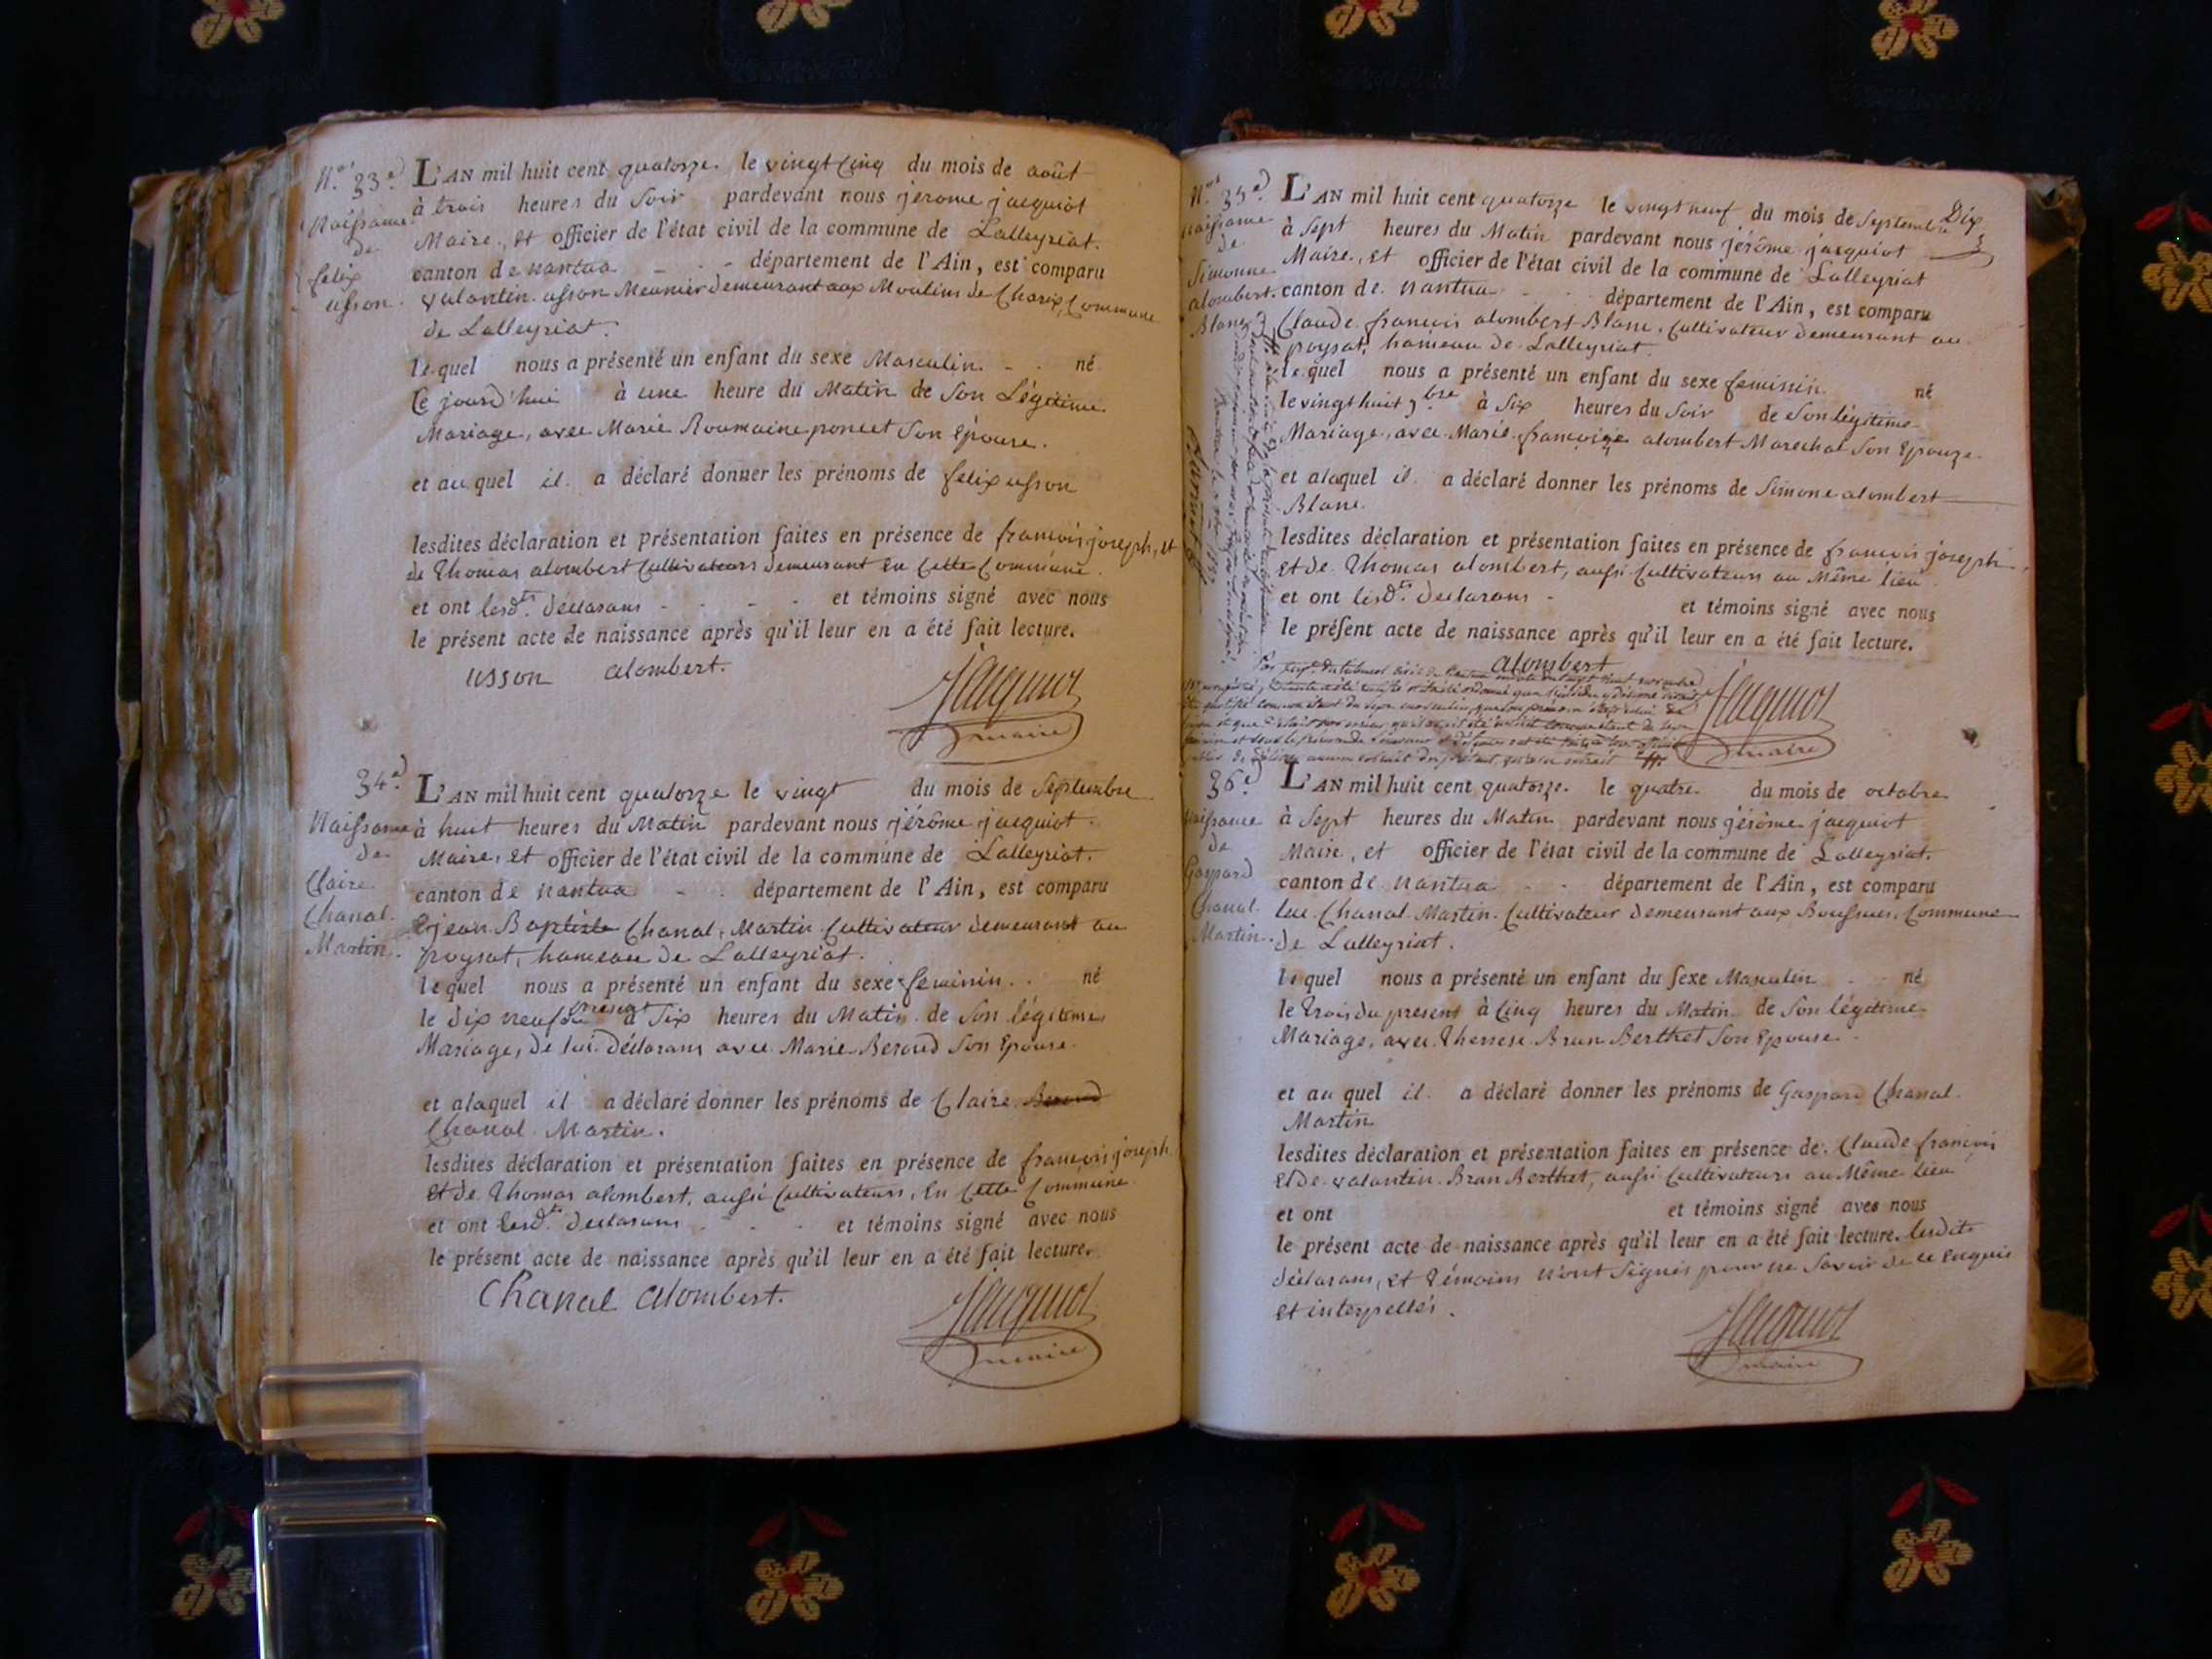 N.º 33.e
Naissance
de
felix
usson.
L'AN mil huit cent quatorze. le vingt cinq du mois de août
à trois heures du Soir pardevant nous jérome jacquiot
Maire, et officier de l'état civil de la commune de Lalleyriat.
canton de nantua - - - département de l'Ain, est comparu
valantin usson Meunier demeurant aux Moulins de Charix, Commune
de Lalleyriat.
lequel nous a présenté un enfant du sexe Masculin. - . né
Ce jourd'hui à une heure du Matin de Son Légitime
Mariage, avec Marie Roumaine poncet Son Epouse.
et au quel il a déclaré donner les prénoms de felix usson
lesdites déclaration et présentation faites en présence de françois joseph, et
de Thomas alombert Cultivateurs demeurant en Cette Commune.
et ont lesd.ts déclarans - - - - et témoins signé avec nous
le présent acte de naissance après qu'il leur en a été fait lecture.
usson alombert.
Jacquiot
maire
34.e
Naissance
de
Claire
Chanal.
Martin.
L'AN mil huit cent quatorze le vingt du mois de Septembre
à huit heures du Matin pardevant nous jérôme jacquiot.
Maire, et officier de l'état civil de la commune de Lalleyriat.
canton de nantua - . département de l'Ain, est comparu
jean Baptiste Chanal, Martin Cultivateur demeurant au
poysat, hameau de Lalleyriat.
lequel nous a présenté un enfant du sexe feminin. . né
le dix neuf du present à Six heures du Matin de Son légitime
Mariage, de lui déclarans avec Marie Beroud Son Epouse.
et alaquel il a déclaré donner les prénoms de Claire Beroud
Chanal Martin.
lesdites déclaration et présentation faites en présence de françois joseph
et de Thomas alombert, aussi Cultivateurs, En Cette Commune
et ont lesd.ts declarans - - - et témoins signé avec nous
le présent acte de naissance après qu'il leur en a été fait lecture.
Chanal alombert.
Jacquiot
maire
N.º 35.e
Naissance
de
Simonne
alombert.
Blanc
L'AN mil huit cent quatorze le vingt neuf du mois de Septembre Dix
à Sept heures du Matin pardevant nous jérôme jacquiot
Maire, et officier de l'état civil de la commune de Lalleyriat
canton de nantua - - département de l'Ain, est comparu
Claude françois alombert Blanc, Cultivateur demeurant au
poysat, hameau de Lalleyriat.
lequel nous a présenté un enfant du sexe feminin né
le vingt huit 7.bre à Six heures du Soir de Son légitime
Mariage, avec Marie françoise alombert Marechal Son Epouze.
et alaquel il a déclaré donner les prénoms de Simone alombert
Blanc.
lesdites déclaration et présentation faites en présence de françois joseph
et de Thomas alombert, aussi Cultivateurs au Même lieu
et ont lesd.ts declarans - et témoins signé avec nous
le présent acte de naissance après qu'il leur en a été fait lecture.
alombert
Jacquiot
maire
36.e
Naissance
de
Gaspard
Chanal
Martin.
L'AN mil huit cent quatorze. le quatre du mois de octobre
à Sept heures du Matin pardevant nous jérôme jacquiot
Maire, et officier de l'état civil de la commune de Lalleyriat.
canton de nantua - - département de l'Ain, est comparu
luc Chanal Martin Cultivateur demeurant aux Commune
de Lalleyriat.
lequel nous a présenté un enfant du sexe Masculin - né
le trois du present à Cinq heures du Matin de Son légitime
Mariage, avec Therrese Brun Berthet Son Epouse.
et au quel il a déclaré donner les prénoms de Gaspard Chanal.
Martin
lesdites déclaration et présentation faites en présence de Claude françois
et de valantin Brun Berthet, aussi Cultivateurs au Même lieu
et ont et témoins signé avec nous
le présent acte de naissance après qu'il leur en a été fait lecture. lesdits
déclarans, et témoins n'ont Signés pour ne Savoir de ce Enquis
et interpellés.
Jacquiot
maire